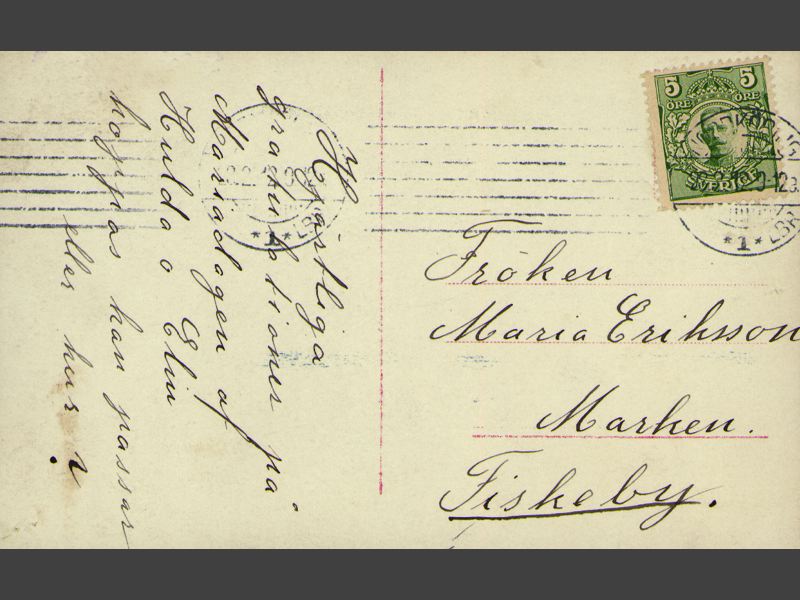 Hjärtliga
gratulationer på
Mariadagen af
Hulda o Elin
hoppas han passar
eller hur?
5 5
ÖRE ÖRE
SVERIGE
* 1 * LBR
* 1 * LBR
Fröken
Maria Eriksson
Marken.
Fiskeby.